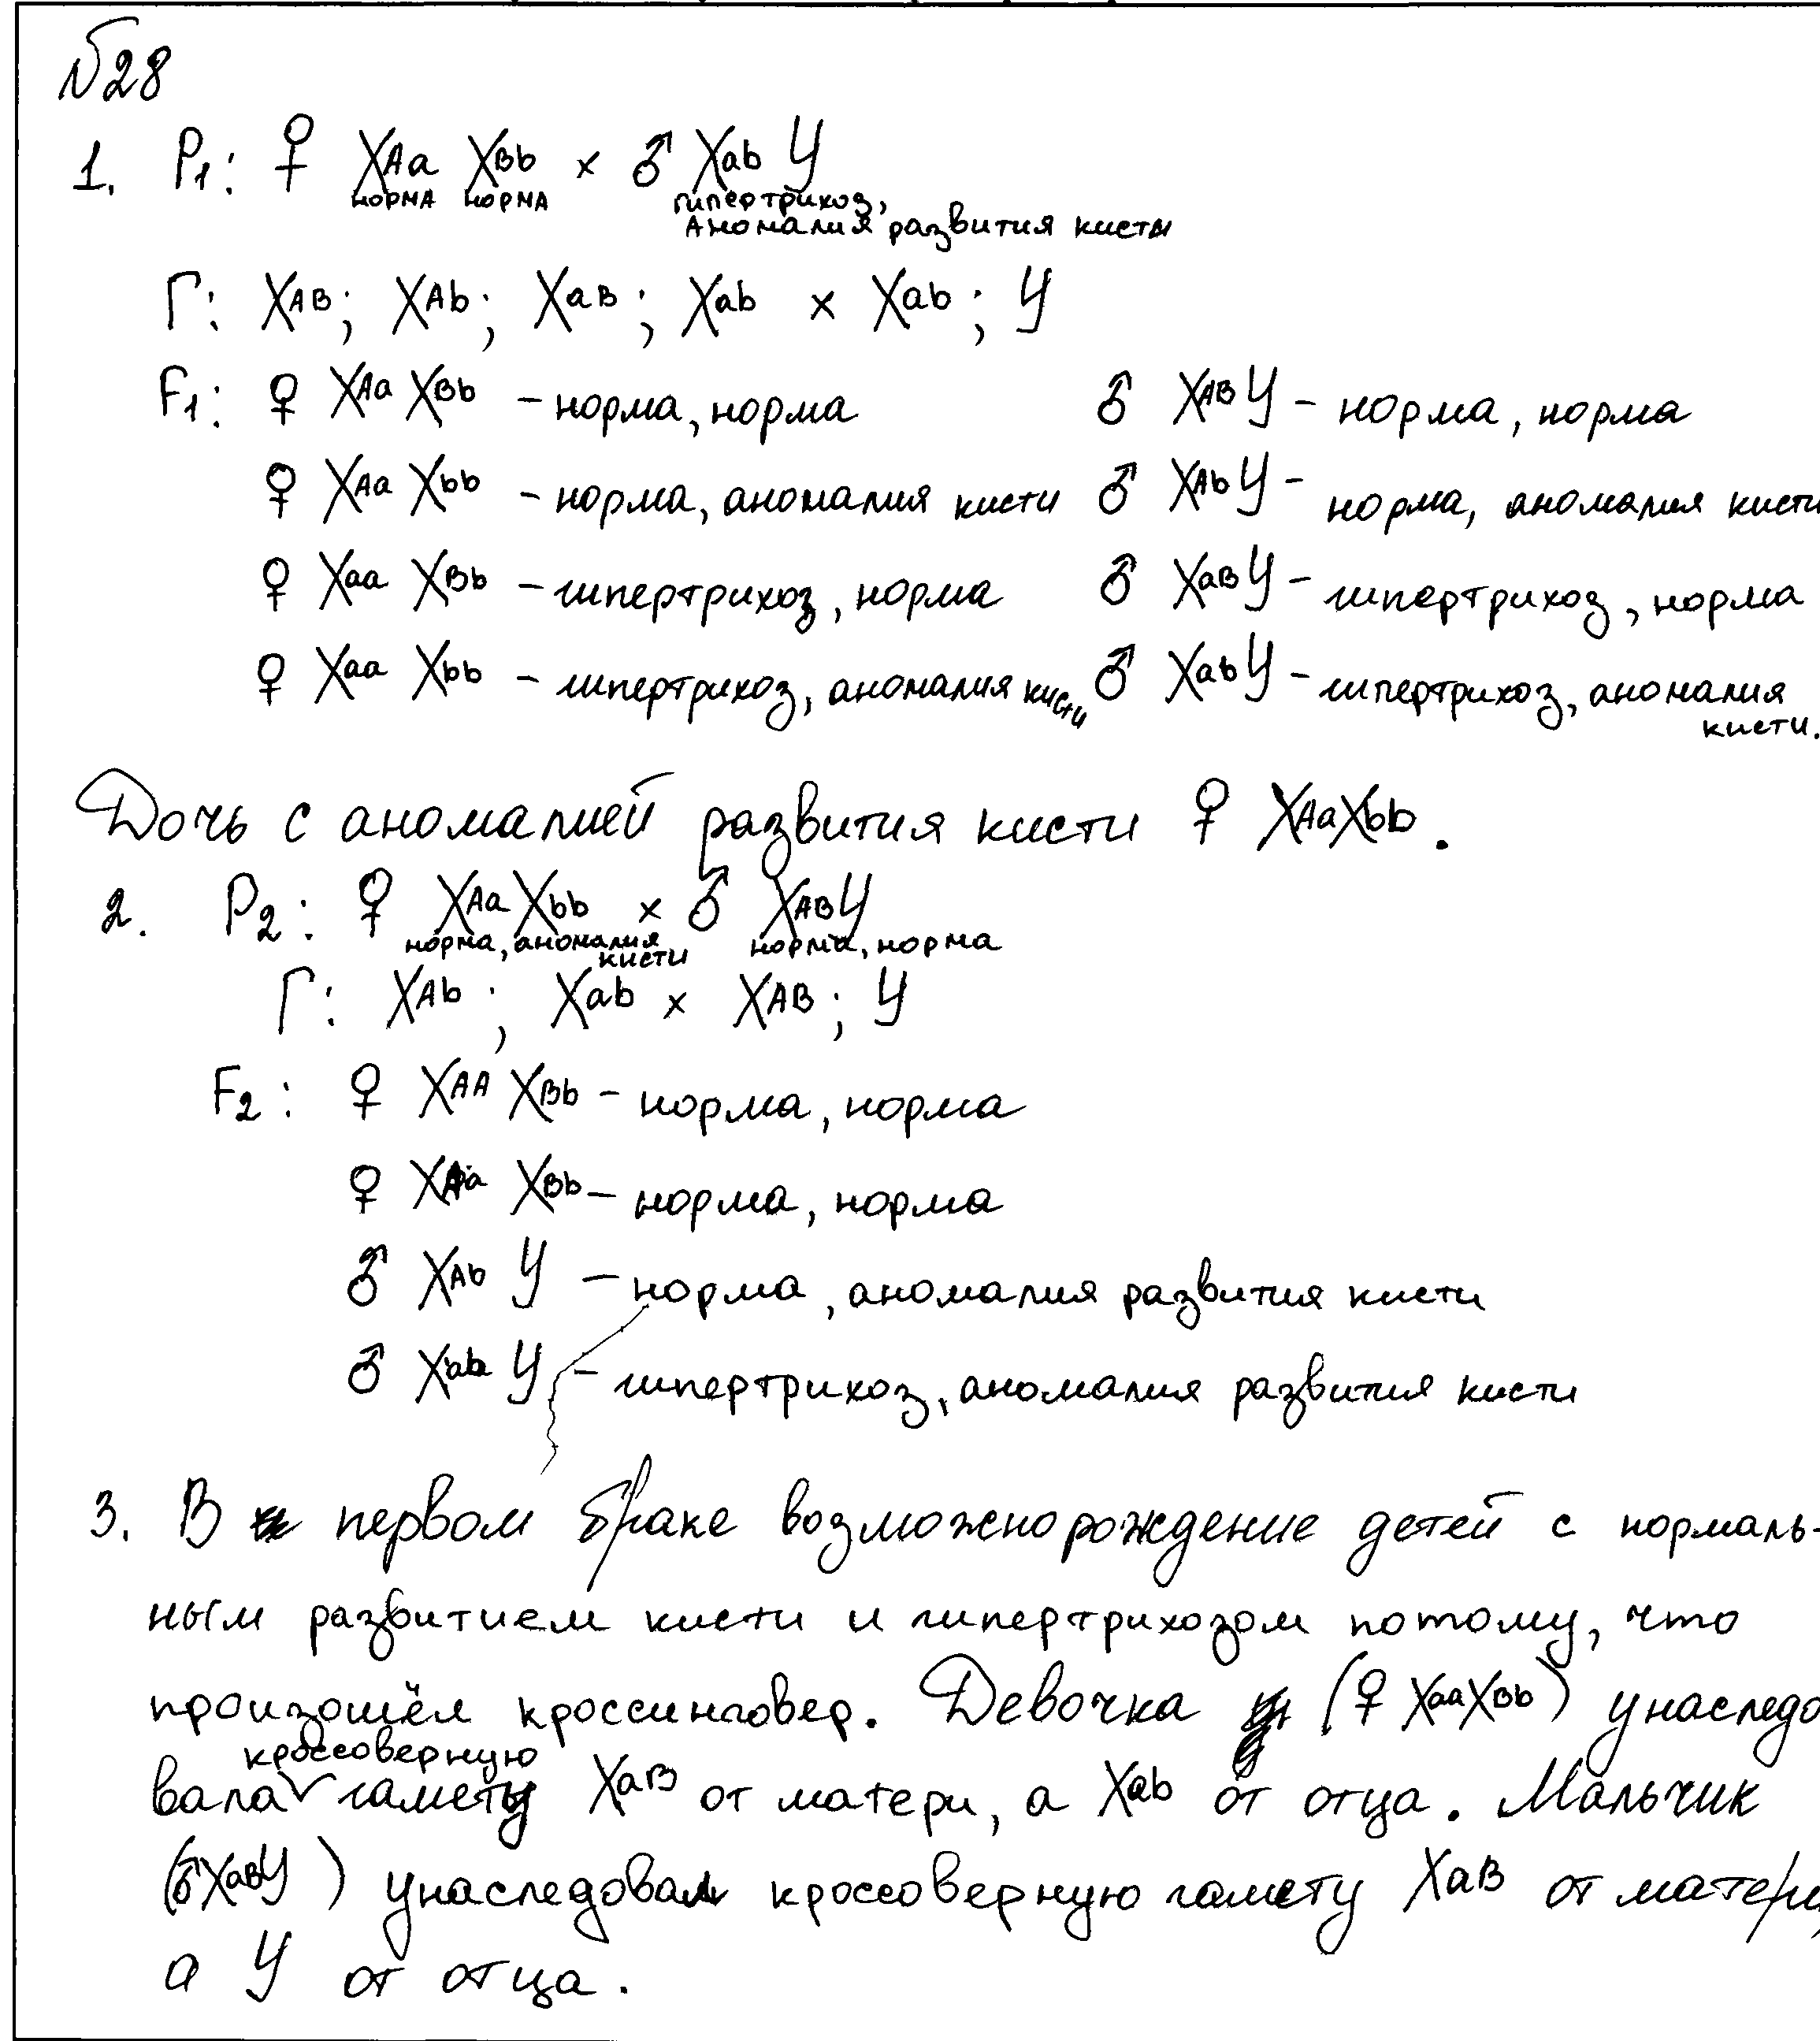 №28
1. P₁: ♀ XAa XBb × ♂ Xab У
норма норма гипертрихоз,
аномалия развития кисты
Г: XAB; XAb; XaB; Xab × Xab; У
F₁: ♀ XAa XBb – норма, норма ♂ XAB У – норма, норма
♀ XAa Xbb – норма, аномалия кисти ♂ XAb У – норма, аномалия кисти
♀ Xaa XBb – гипертрихоз, норма ♂ XaB У – гипертрихоз, норма
♀ Xaa Xbb – гипертрихоз, аномалия кисти ♂ Xab У – гипертрихоз, аномалия
кисти.
Дочь с аномалией развития кисти ♀ XAaXbb.
2. P₂: ♀ XAa Xbb × ♂ XABУ
норма, аномалия кисти норма, норма
Г: XAb; Xab × XAB; У
F₂: ♀ XAA XBb – норма, норма
♀ XAa XBb – норма, норма
♂ XAb У – норма, аномалия развития кисти
♂ Xab У – гипертрихоз, аномалия развития кисти
3. В первом браке возможно рождение детей с нормаль-
ным развитием кисти и гипертрихозом потому, что
произошёл кроссинговер. Девочка (♀ XaaXBb) унаследо
вала кроссоверную гамету XaB от матери, а Xab от отца. Мальчик
(♂XaBУ) унаследовал кроссоверную гамету XaB от матери,
а У от отца.